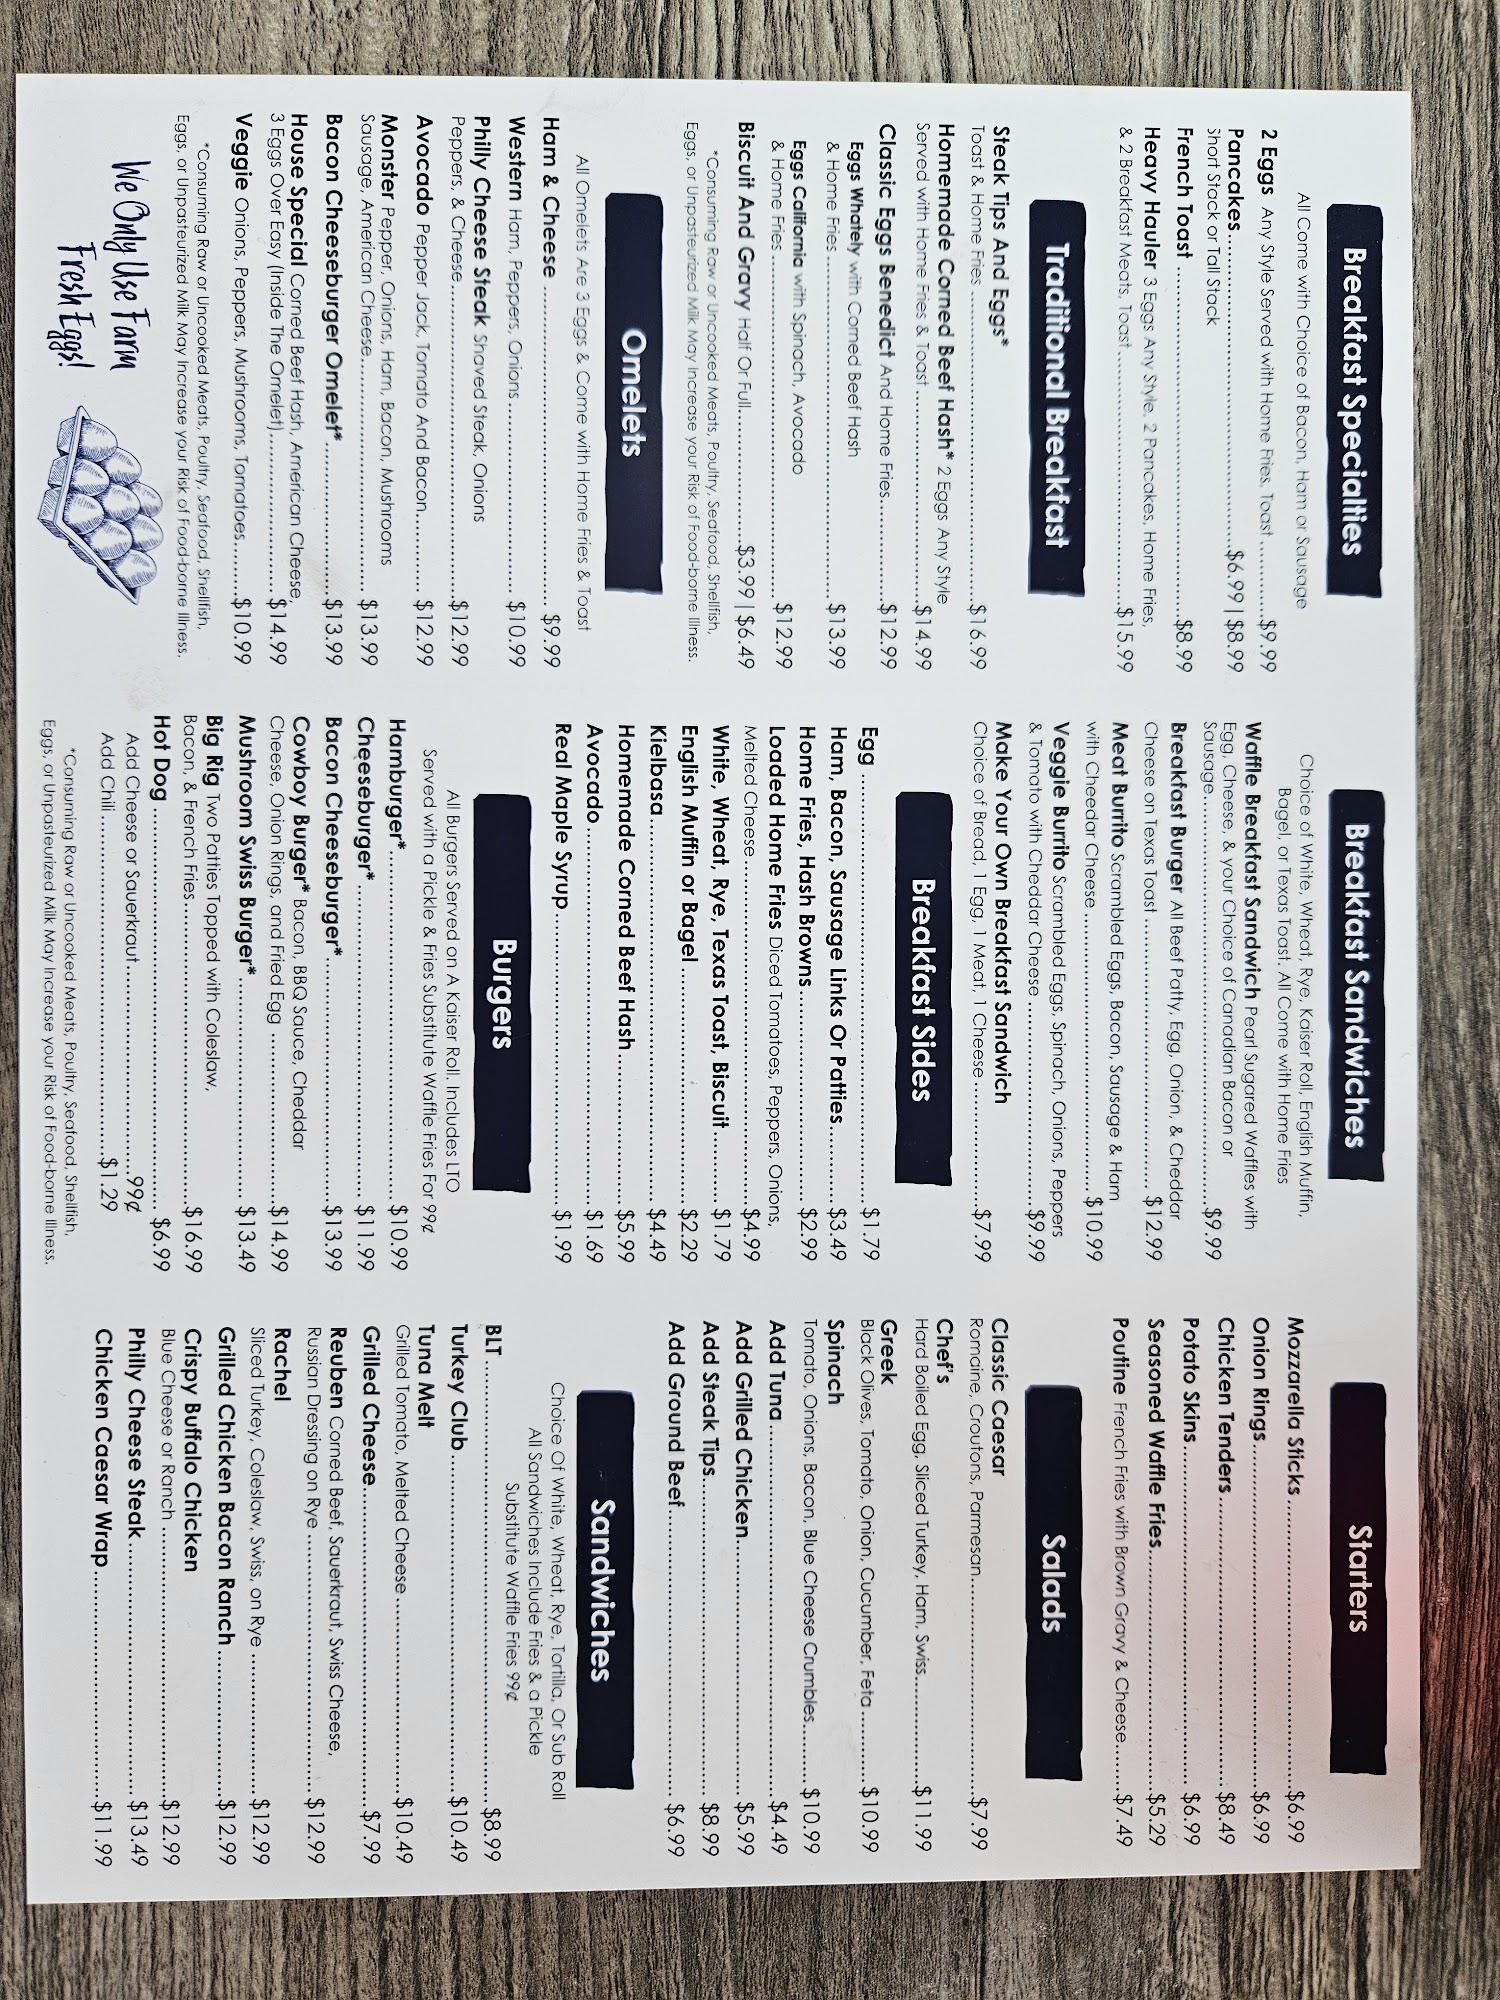 Breakfast Specialties
All Come with Choice of Bacon, Ham or Sausage
2 Eggs Any Style Served with Home Fries, Toast ............$9.99
Pancakes........................................$6.99 | $8.99
Short Stack or Tall Stack
French Toast ........................................$8.99
Heavy Hauler 3 Eggs Any Style, 2 Pancakes, Home Fries,
& 2 Breakfast Meats, Toast........................................$15.99
Traditional Breakfast
Steak Tips And Eggs*
Toast & Home Fries ........................................$16.99
Homemade Corned Beef Hash* 2 Eggs Any Style
Served with Home Fries & Toast ........................................$14.99
Classic Eggs Benedict And Home Fries....................$12.99
Eggs Whately with Corned Beef Hash
& Home Fries ........................................$13.99
Eggs California with Spinach, Avocado
& Home Fries ........................................ $12.99
Biscuit And Gravy Half Or Full....................$3.99 | $6.49
*Consuming Raw or Uncooked Meats, Poultry, Seafood, Shellfish,
Eggs, or Unpasteurized Milk May Increase your Risk of Food-borne Illness.
Omelets
All Omelets Are 3 Eggs & Come with Home Fries & Toast
Ham & Cheese ........................................ $9.99
Western Ham, Peppers, Onions .................... $10.99
Philly Cheese Steak Shaved Steak, Onions
Peppers, & Cheese........................................$12.99
Avocado Pepper Jack, Tomato And Bacon............ $12.99
Monster Pepper, Onions, Ham, Bacon, Mushrooms
Sausage, American Cheese............................ $13.99
Bacon Cheeseburger Omelet*....................$13.99
House Special Corned Beef Hash, American Cheese,
3 Eggs Over Easy (Inside The Omelet)....................$14.99
Veggie Onions, Peppers, Mushrooms, Tomatoes........$10.99
*Consuming Raw or Uncooked Meats, Poultry, Seafood, Shellfish,
Eggs, or Unpasteurized Milk May Increase your Risk of Food-borne Illness.
We Only Use Farm
Fresh Eggs!
Breakfast Sandwiches
Choice of White, Wheat, Rye, Kaiser Roll, English Muffin,
Bagel, or Texas Toast. All Come with Home Fries
Waffle Breakfast Sandwich Pearl Sugared Waffles with
Egg, Cheese, & your Choice of Canadian Bacon or
Sausage........................................$9.99
Breakfast Burger All Beef Patty, Egg, Onion, & Cheddar
Cheese on Texas Toast ........................................ $12.99
Meat Burrito Scrambled Eggs, Bacon, Sausage & Ham
with Cheedar Cheese ........................................ $10.99
Veggie Burrito Scrambled Eggs, Spinach, Onions, Peppers
& Tomato with Cheddar Cheese ............................$9.99
Make Your Own Breakfast Sandwich
Choice of Bread, 1 Egg, 1 Meat, 1 Cheese................$7.99
Breakfast Sides
Egg ........................................$1.79
Ham, Bacon, Sausage Links Or Patties............$3.49
Home Fries, Hash Browns............................$2.99
Loaded Home Fries Diced Tomatoes, Peppers, Onions,
Melted Cheese........................................$4.99
White, Wheat, Rye, Texas Toast, Biscuit............$1.79
English Muffin or Bagel............................$2.29
Kielbasa........................................$4.49
Homemade Corned Beef Hash....................$5.99
Avocado ........................................$1.69
Real Maple Syrup............................ $1.99
Burgers
All Burgers Served on A Kaiser Roll. Includes LTO
Served with a Pickle & Fries Substitute Waffle Fries For 99¢
Hamburger*........................................$10.99
Cheeseburger* ........................................ $11.99
Bacon Cheeseburger*............................$13.99
Cowboy Burger* Bacon, BBQ Sauce, Cheddar
Cheese, Onion Rings, and Fried Egg ....................$14.99
Mushroom Swiss Burger* ............................ $13.49
Big Rig Two Patties Topped with Coleslaw,
Bacon, & French Fries ........................................$16.99
Hot Dog ........................................ $6.99
Add Cheese or Sauerkraut............................99¢
Add Chili........................................$1.29
*Consuming Raw or Uncooked Meats, Poultry, Seafood, Shellfish,
Eggs, or Unpasteurized Milk May Increase your Risk of Food-borne Illness.
Starters
Mozzarella Sticks ............................$6.99
Onion Rings........................................$6.99
Chicken Tenders............................$8.49
Potato Skins........................................ $6.99
Seasoned Waffle Fries............................$5.29
Poutine French Fries with Brown Gravy & Cheese ........$7.49
Salads
Classic Caesar
Romaine, Croutons, Parmesan............................$7.99
Chef's
Hard Boiled Egg, Sliced Turkey, Ham, Swiss............$11.99
Greek
Black Olives, Tomato, Onion, Cucumber, Feta ............$10.99
Spinach
Tomato, Onions, Bacon, Blue Cheese Crumbles........$10.99
Add Tuna ........................................ $4.49
Add Grilled Chicken............................ $5.99
Add Steak Tips............................$8.99
Add Ground Beef............................ $6.99
Sandwiches
Choice Of White, Wheat, Rye, Tortilla, Or Sub Roll
All Sandwiches Include Fries & a Pickle
Substitute Waffle Fries 99¢
BLT ........................................ $8.99
Turkey Club........................................$10.49
Tuna Melt
Grilled Tomato, Melted Cheese ............................$10.49
Grilled Cheese............................$7.99
Reuben Corned Beef, Sauerkraut, Swiss Cheese,
Russian Dressing on Rye ............................$12.99
Rachel
Sliced Turkey, Coleslaw, Swiss, on Rye ....................$12.99
Grilled Chicken Bacon Ranch....................$12.99
Crispy Buffalo Chicken
Blue Cheese or Ranch ............................$12.99
Philly Cheese Steak............................ $13.49
Chicken Caesar Wrap............................$11.99